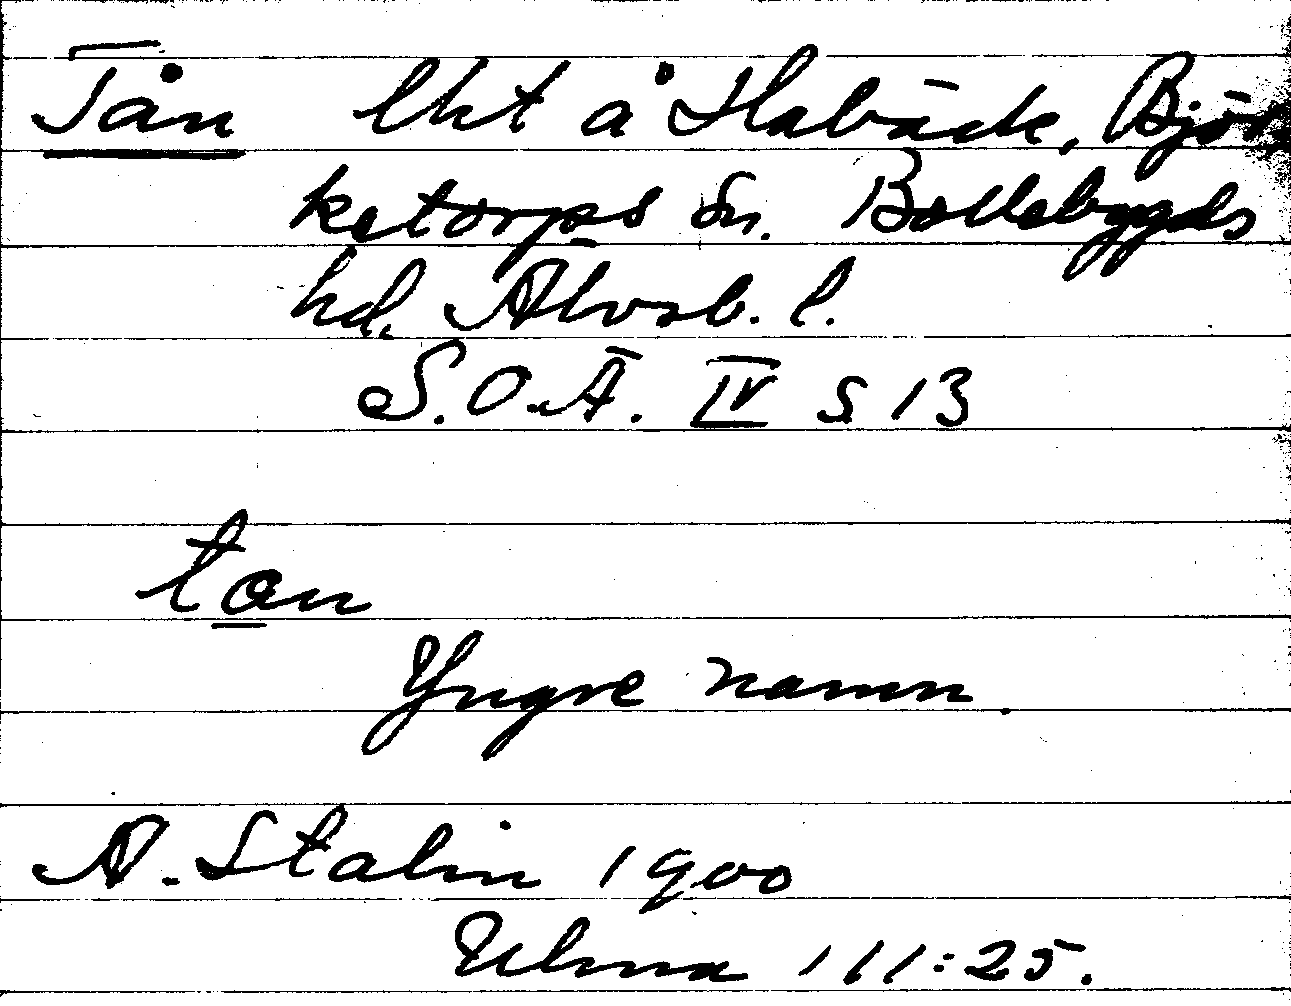 Tån lht å Habäck, Björ-
ketorps sn. Bollebygds
hd. Älvsb. l.
S.O.Ä. IV s 13
tan
Yngre namn.
A. Stalin 1900
Ulma 111:25.